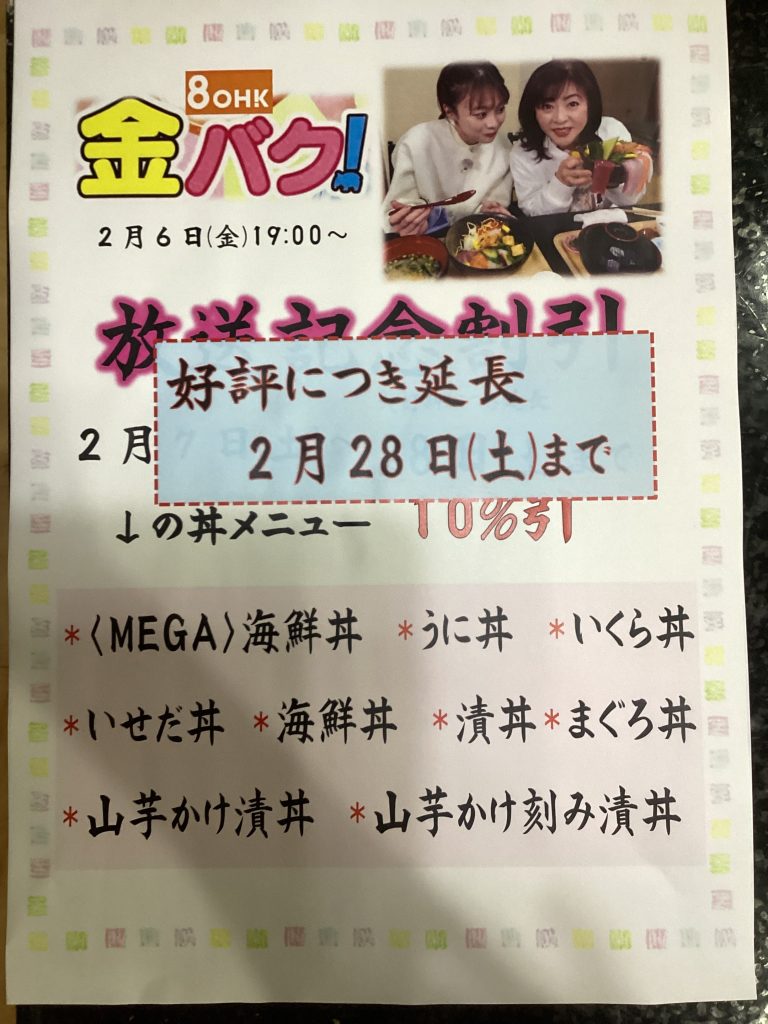 8OHK
金バク!
2月6日(金)19:00~
放送記念割引
好評につき延長
2月
2月28日(土)まで
↓の丼メニュー 10%引
*〈MEGA〉海鮮丼 *うに丼 *いくら丼
*いせだ丼 *海鮮丼 *漬丼 *まぐろ丼
*山芋かけ漬丼 *山芋かけ刻み漬丼